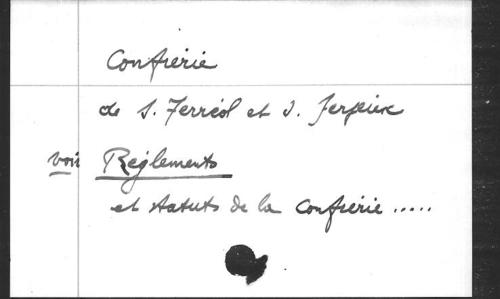 Confrérie
de S. Ferréol et S. Ferjeux
voir Réglements
et statuts de la Confrérie .....